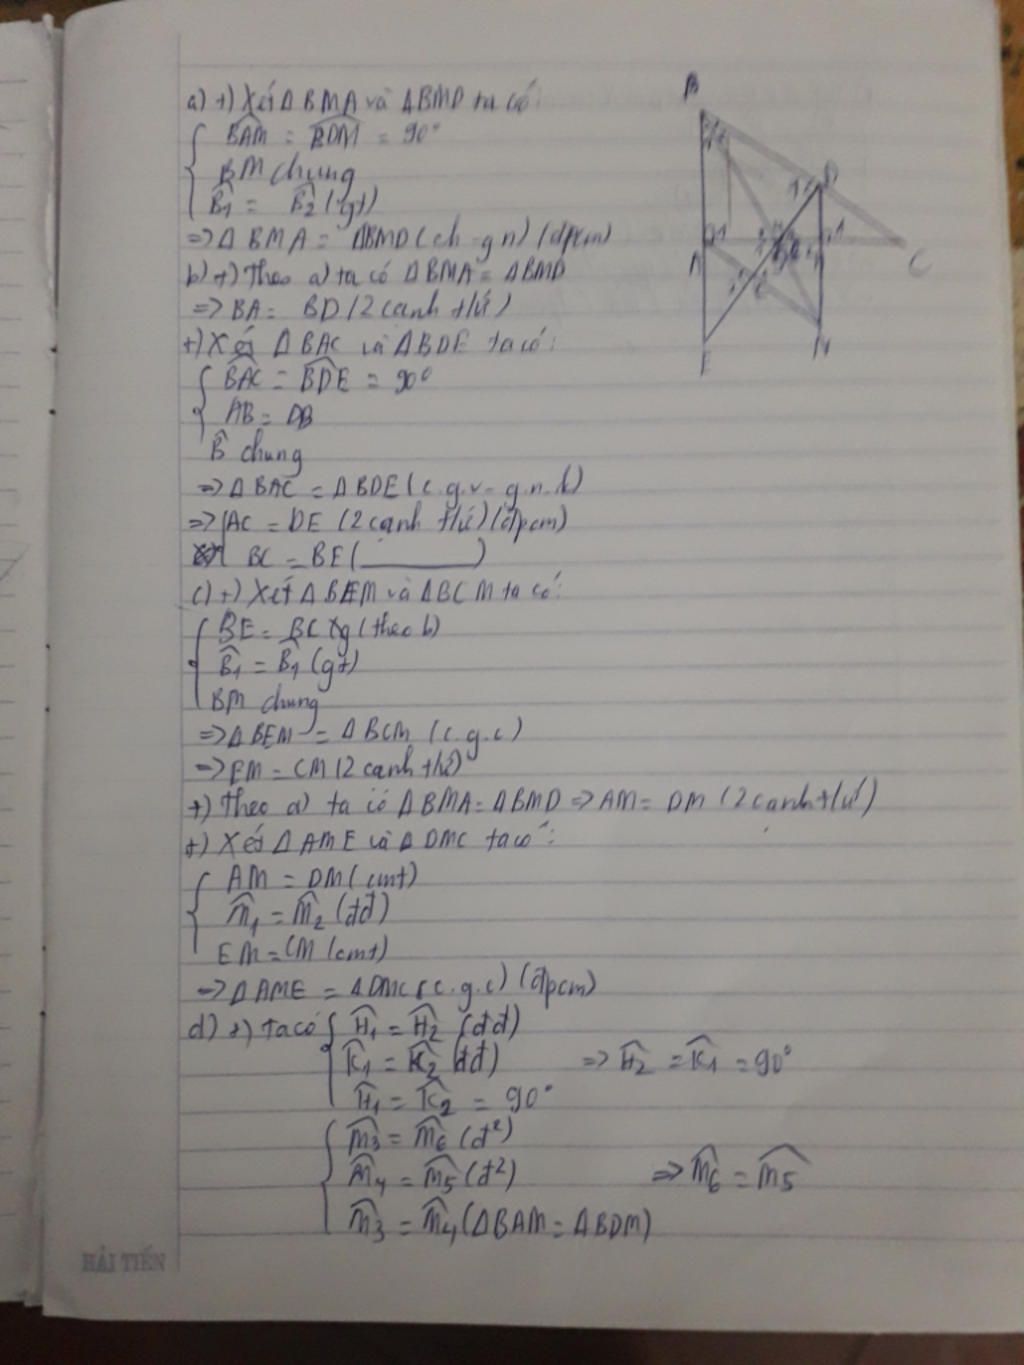 a) +) Xét ΔBMA và ΔBMD ta có:
{ BAM̂ = BDM̂ = 90°
BM chung
B̂1 = B̂2 (gt)
=> ΔBMA = ΔBMD (ch-gn) (đpcm)
b) +) Theo a) ta có ΔBMA = ΔBMD
=> BA = BD (2 cạnh t/ứ)
+) Xét ΔBAC và ΔBDE ta có:
{ BAĈ = BDÊ = 90°
AB = DB
B̂ chung
=> ΔBAC = ΔBDE (c.g.v-g.n.k)
=> { AC = DE (2 cạnh t/ứ) (đpcm)
BC = BE (______)
c) +) Xét ΔBEM và ΔBCM ta có:
{ BE = BC (theo b)
B̂1 = B̂1 (gt)
BM chung
=> ΔBEM = ΔBCM (c.g.c)
=> EM = CM (2 cạnh t/ứ)
+) Theo a) ta có ΔBMA = ΔBMD => AM = DM (2 cạnh t/ứ)
+) Xét ΔAME và ΔDMC ta có:
{ AM = DM (cmt)
M̂1 = M̂2 (đđ)
EM = CM (cmt)
=> ΔAME = ΔDMC (c.g.c) (đpcm)
d) +) ta có { Ĥ1 = Ĥ2 (đđ)
K̂1 = K̂2 (đđ) => Ĥ2 = K̂1 = 90°
Ĥ1 = K̂2 = 90°
{ M̂3 = M̂6 (đ²)
M̂4 = M̂5 (đ²) => M̂6 = M̂5
M̂3 = M̂4 (ΔBAM = ΔBDM)
B
D
A
C
E
N
HẢI TIẾN